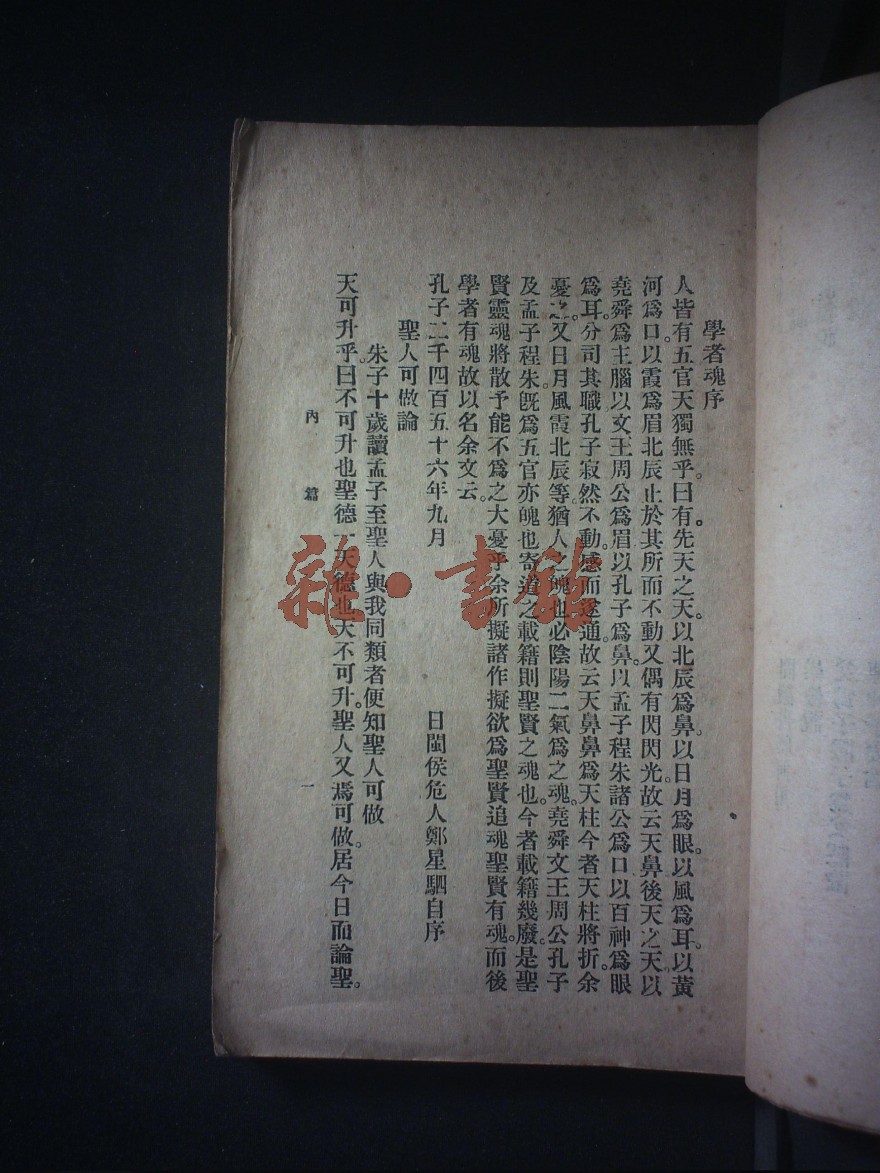 學者魂序
人皆有五官天獨無乎。曰有。先天之天。以北辰爲鼻。以日月爲眼。以風爲耳。以黃
河爲口。以霞爲眉北辰止於其所而不動又偶有閃閃光。故云天鼻後天之天。以
堯舜爲主腦以文王周公爲眉以孔子爲鼻。以孟子程朱諸公爲口以百神爲眼
爲耳。分司其職孔子寂然不動。感而遂通。故云天鼻鼻爲天柱今者天柱將折。余
憂之。又日月風霞北辰等。猶人之魄也必陰陽二氣爲之魂。堯舜文王周公孔子
及孟子程朱。旣爲五官亦魄也寄道之載籍則聖賢之魂也。今者載籍幾廢。是聖
賢靈魂將散予能不爲之大憂乎余所擬諸作擬欲爲聖賢追魂聖賢有魂。而後
學者有魂故以名余文云。
孔子二千四百五十六年九月　　　日閩侯危人鄭星駟自序
聖人可做論
朱子十歲讀孟子至聖人與我同類者便知聖人可做
天可升乎。曰不可升也聖德一天德也天不可升。聖人又焉可做。居今日而論聖。
內篇　一
雜·書館